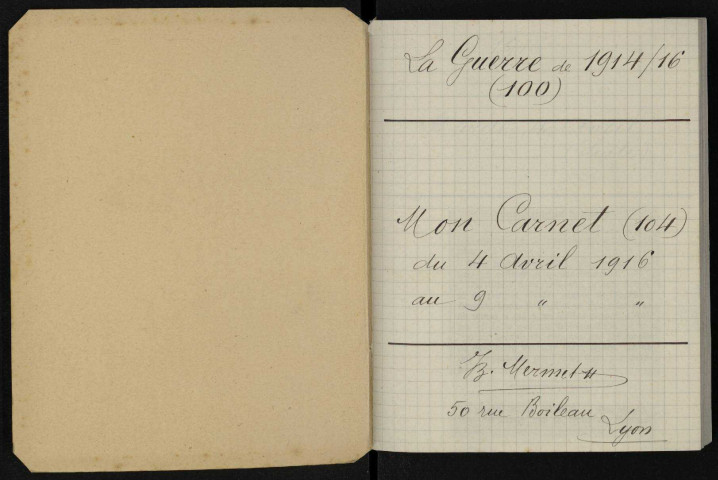 La Guerre de 1914/16
(100)
Mon Carnet (104)
du 4 Avril 1916
au 9 " "
B. Mermet
50 rue Boileau
Lyon